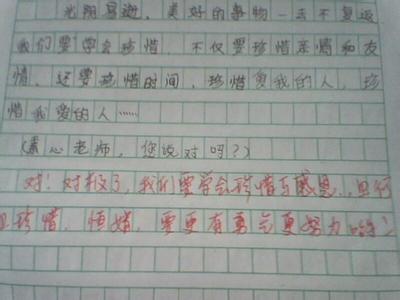 光阴易逝，美好的事物一去不复返
我们要学会珍惜，不仅要珍惜亲情和友
情，还要珍惜时间，珍惜爱我的人，珍
惜我爱的人……
(素心老师，您说对吗？)
对！对极了，我们要学会珍惜与感恩…且行
且珍惜，恒婧，要更有勇气更努力哟！